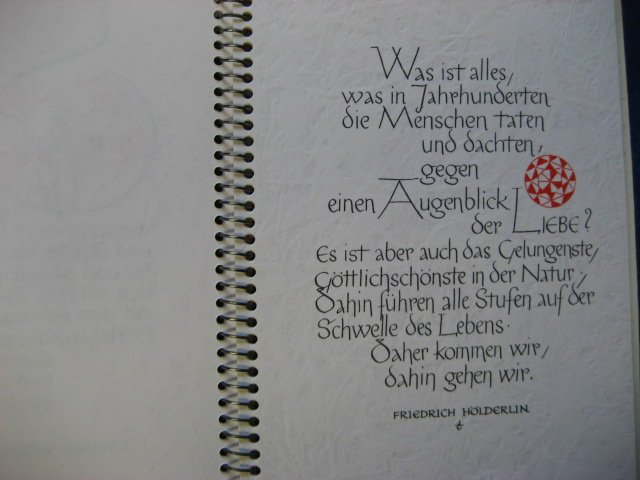 Was ist alles,
was in Jahrhunderten
die Menschen taten
und dachten,
gegen
einen Augenblick
der LIEBE?
Es ist aber auch das Gelungenste,
Göttlichschönste in der Natur;
Dahin führen alle Stufen auf der
Schwelle des Lebens.
Daher kommen wir,
dahin gehen wir.
FRIEDRICH HÖLDERLIN